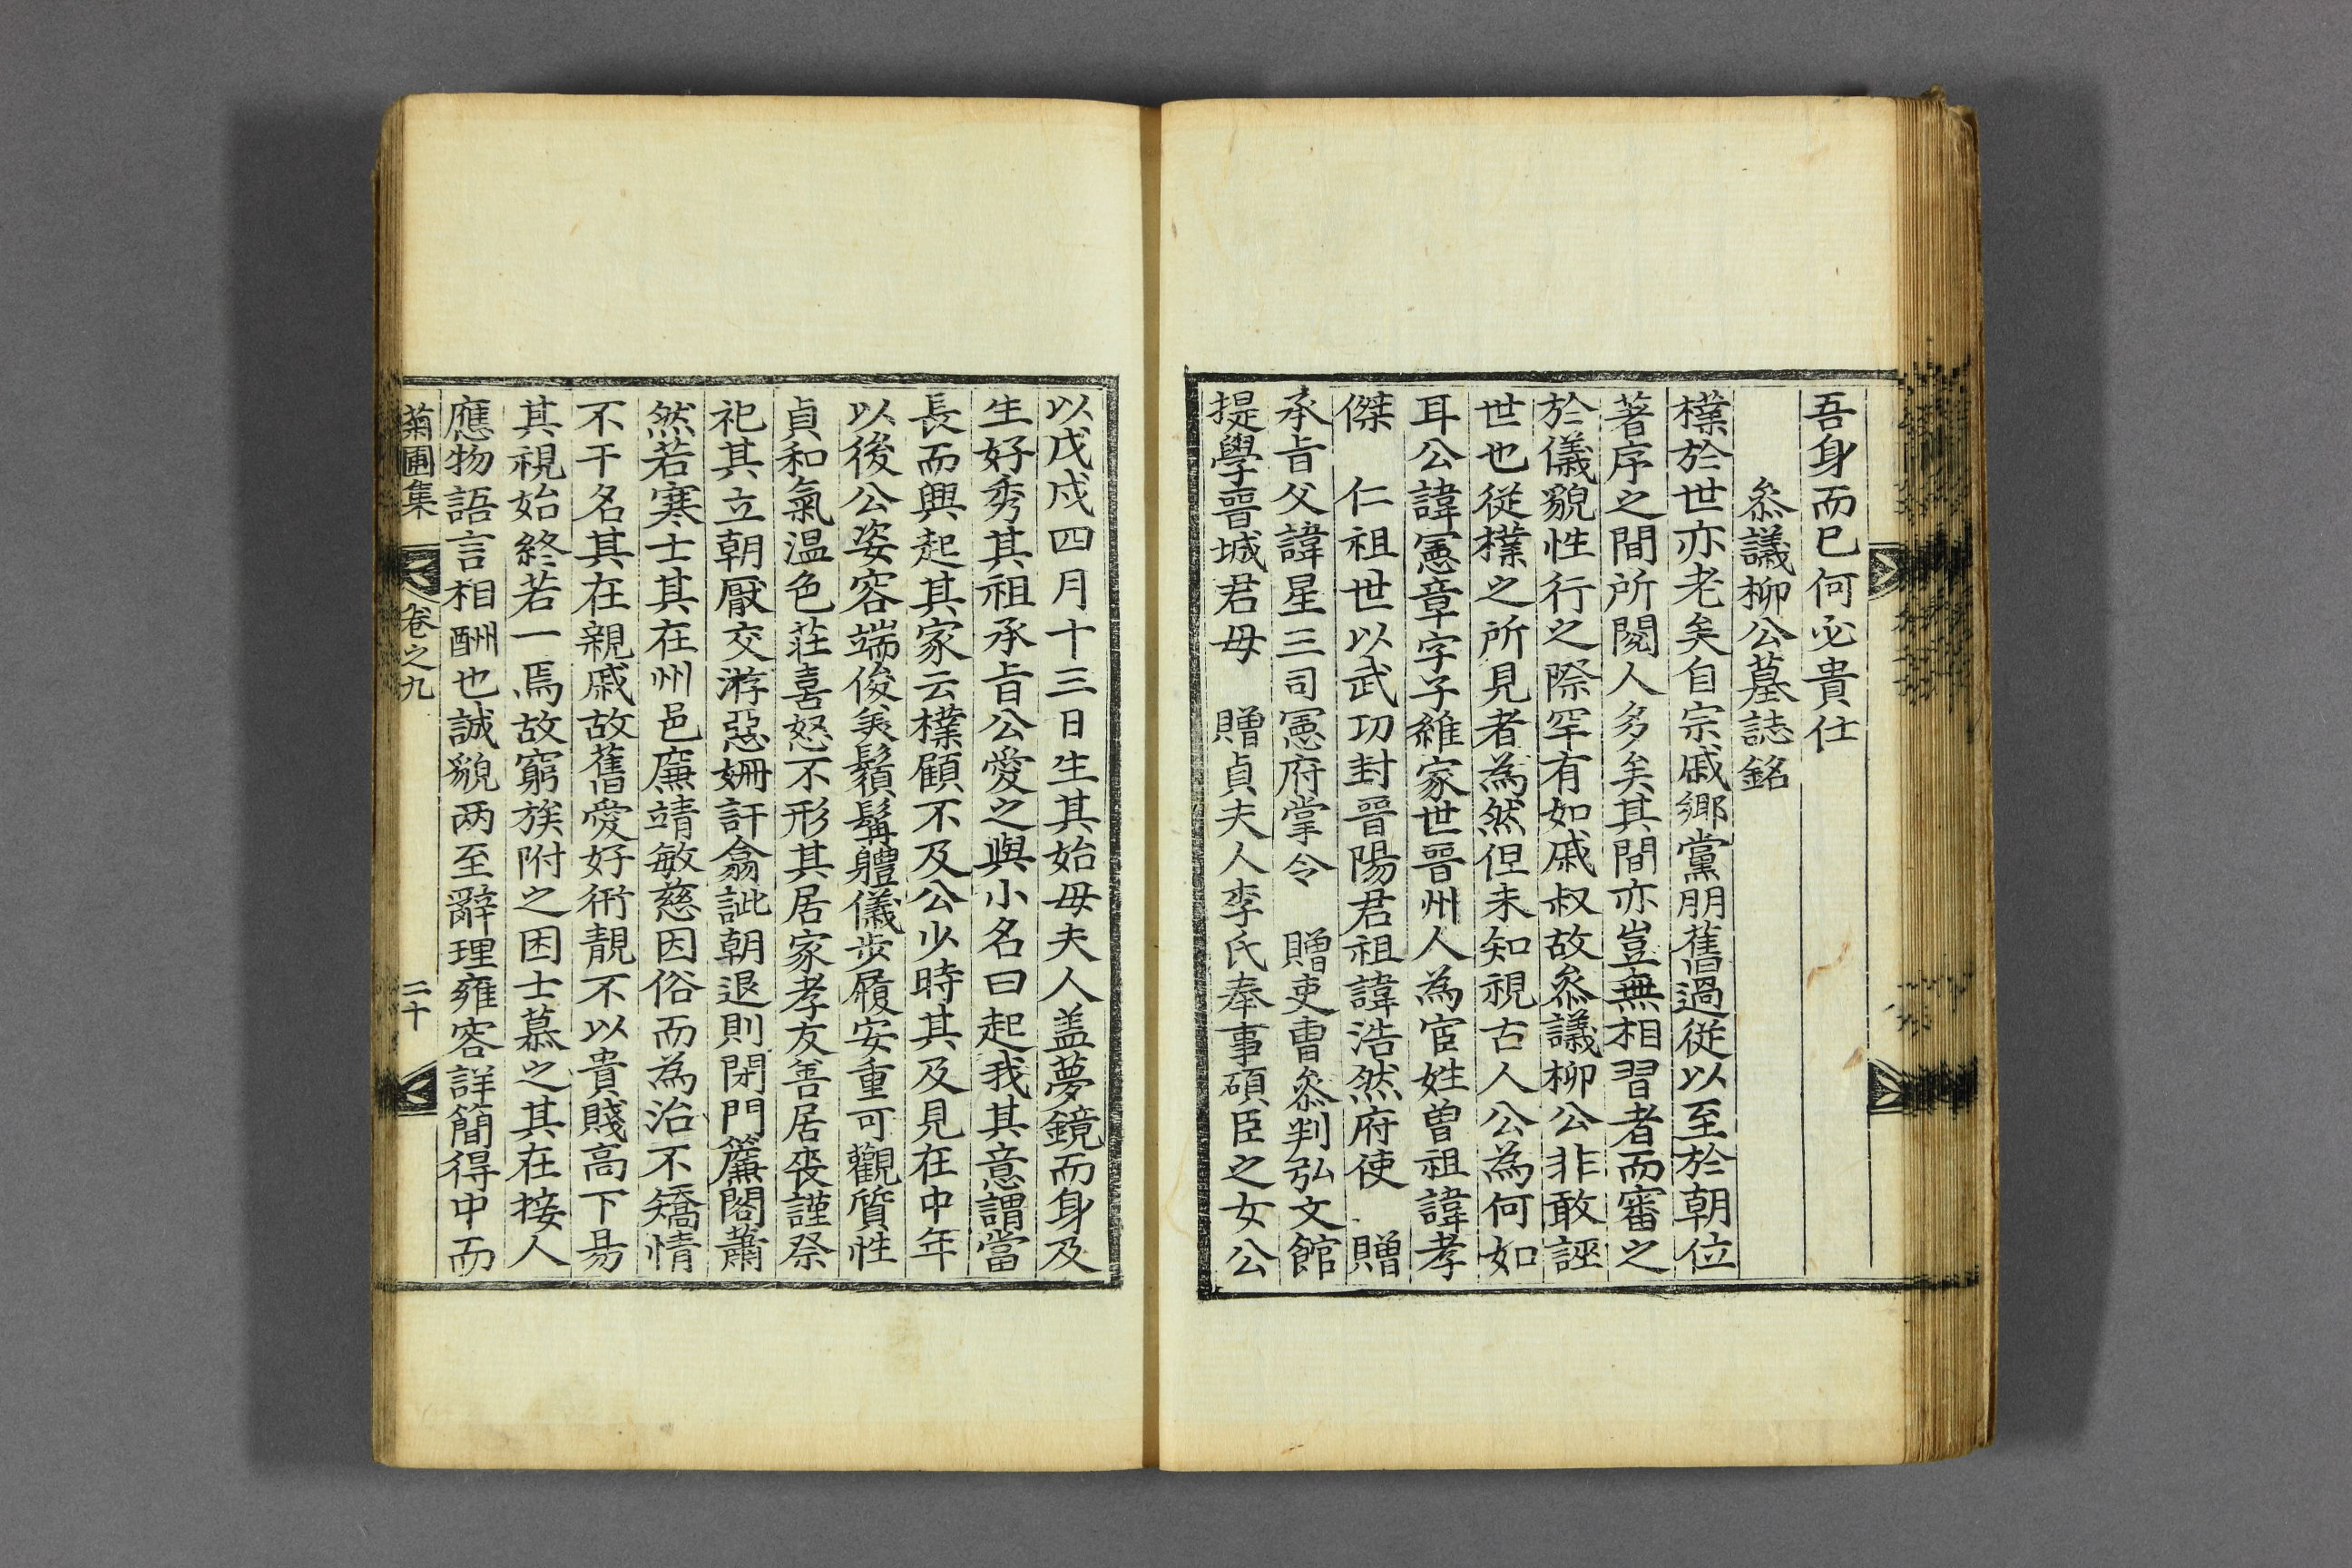 吾身而已何必貴仕
叅議柳公墓誌銘
樸於世亦老矣自宗戚鄉黨朋舊過從以至於朝位
著序之間所閱人多矣其間亦豈無相習者而審之
於儀貌性行之際罕有如戚叔故叅議柳公非敢誣
世也從樸之所見者為然但未知視古人公為何如
耳公諱憲章字子維家世晉州人為宦姓曽祖諱孝
傑 仁祖世以武功封晉陽君祖諱浩然府使 贈
承旨父諱星三司憲府掌令 贈吏曹叅判弘文館
提學晉城君母 贈貞夫人李氏奉事碩臣之女公
以戊戌四月十三日生其始母夫人盖夢鏡而身及
生好秀其祖承旨公愛之與小名曰起我其意謂當
長而興起其家云樸顧不及公少時其及見在中年
以後公姿容端俊美鬚髯軆儀步履安重可觀質性
貞和氣温色莊喜怒不形其居家孝友善居喪謹祭
祀其立朝厭交游惡姍訐翕訿朝退則閉門簾閤蕭
然若寒士其在州邑廉靖敏慈因俗而為治不矯情
不干名其在親戚故舊愛好術靚不以貴賤高下昜
其視始終若一焉故窮族附之困士慕之其在接人
應物語言相酬也誠貌两至辭理雍容詳簡得中而
菊圃集 卷之九 二十